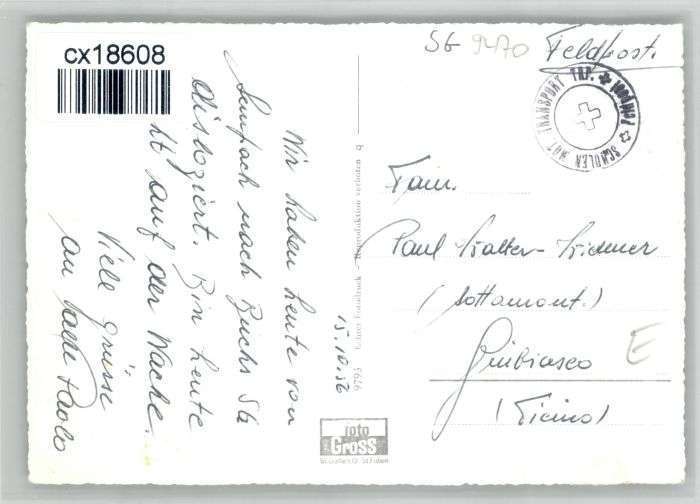 cx18608
SG 9470 Feldpost.
SCHULEN MOT TRANSPORT TRP.
15.10.52
Wir haben heute von
Sempach nach Buchs SG
disloziert. Bin heute
auf der Wache.
Viele Grüsse
an Paolo
9793 Echter Fotodruck - Reproduktion verboten
Fam.
Paul Walter-
(Sottomont.)
Giubiasco
(Ticino)
E
foto
Gross
St. Gallen